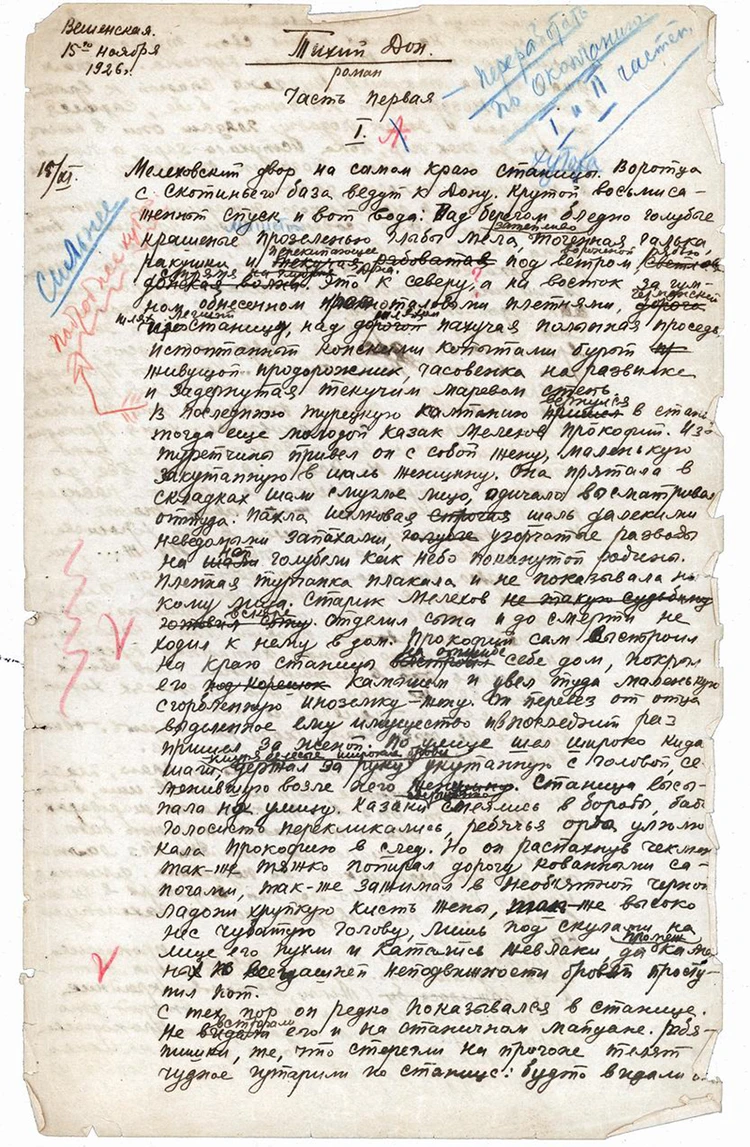 Вешенская.
15го ноября
1926г.
Тихий Дон.
роман
Часть первая
I.
— переработать
по окончанию
I и II частей.
15/XI.
хутора
Сильнее
Мелеховский двор на самом краю станицы. Воротца
с скотиньего база ведут к Дону. Крутой восьмиса-
женный спуск и вот вода: Над берегом бледно голубые
крашеные прозеленью глыбы мела,
затейливо
точенная галька,
ракушки и
перекипающее
под ветром
Дона. Это к северу, а на восток за гум-
ном обнесенном красноталовыми плетнями,
гетманский
шлях
станицу, над
пахучая полынная проседь
истоптанный конскими копытами бурый
живущой придорожник, часовенка на развилке
и задернутая текучим маревом степь
В последнюю турецкую кампанию
вернулся
в стани
тогда еще молодой казак Мелехов Прокофий. Из
туретчины привел он с собой жену, маленькую
закутанную в шаль женщину. Она прятала в
складках шали смуглое лицо, одичало высматривая
оттуда. Пахла шелковая строгая шаль далекими
неведомыми запахами, узорчатые разводы
на шали голубели как небо покинутой родины.
Пленная турчанка плакала и не показывала ни-
кому лица. Старик Мелехов не такую судьбину
готовил сыну. отделил сына и до смерти не
ходил к нему в дом. Прокофий сам выстроил
на отшибе
на краю станицы себе дом, покрыл
его под корешок камышом и увел туда маленькую
сгорбленную иноземку-жену. Он перевез от отца
выделенное ему имущество и в последний раз
пришел за женой. По улице шел широко кидая
шаги, держал за руку укутанную с головой се-
менившую возле него. Станица высы-
пала на улицу. Казаки смеялись в бороды, бабы
голосисто перекликались, ребячья орда улюлю-
кала Прокофию в след. Но он распахнув чекмень
так-же тяжко попирал дорогу кованными са-
погами, так-же зажимал в необъятной черной
ладони хрупкую кисть жены, так-же высоко
нес чубатую голову, лишь под скулами на
лице его пухли и катались желваки да
промеж
камен
ных в всегдашней неподвижности бровей просту-
пил пот.
С тех пор он редко показывался в станице.
Не видали его и на станичном майдане. Ребя-
тишки, те, что стерегли на прогоне телят
чудное гутарили по станице: будто видали